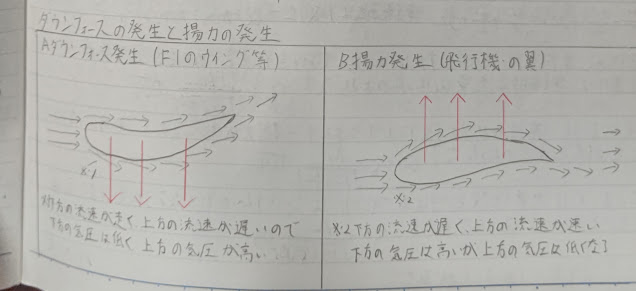 ダウンフォースの発生と揚力の発生
Aダウンフォース発生(F1のウイング等)
※1
※1下方の流速が速く上方の流速が遅いので
下方の気圧は低く上方の気圧が高い
B揚力発生(飛行機の翼)
※2
※2下方の流速が遅く、上方の流速が速い
下方の気圧は高いが上方の気圧は低くなる